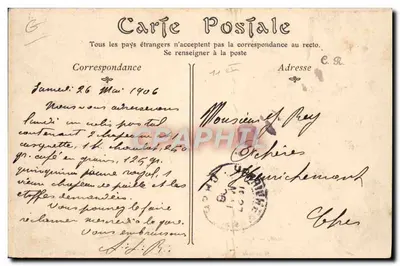 Carte Postale
Tous les pays étrangers n'acceptent pas la correspondance au recto.
Se renseigner à la poste
Correspondance
Adresse
C. R.
Samedi 26 Mai 1906
Nous vous adresserons
lundi un colis postal
contenant 2 chapeaux, 1
casquette, 1 t. chocolat, 250
gr. café en grains, 125 gr.
quinquina jaune royal, 1
vieux chapeau de paille et les
étoffes demandées.
Vous pouvez le faire
réclamer mercredi à la gare.
Vous embrassons
Monsieur Rey
Henrichemont
Cher